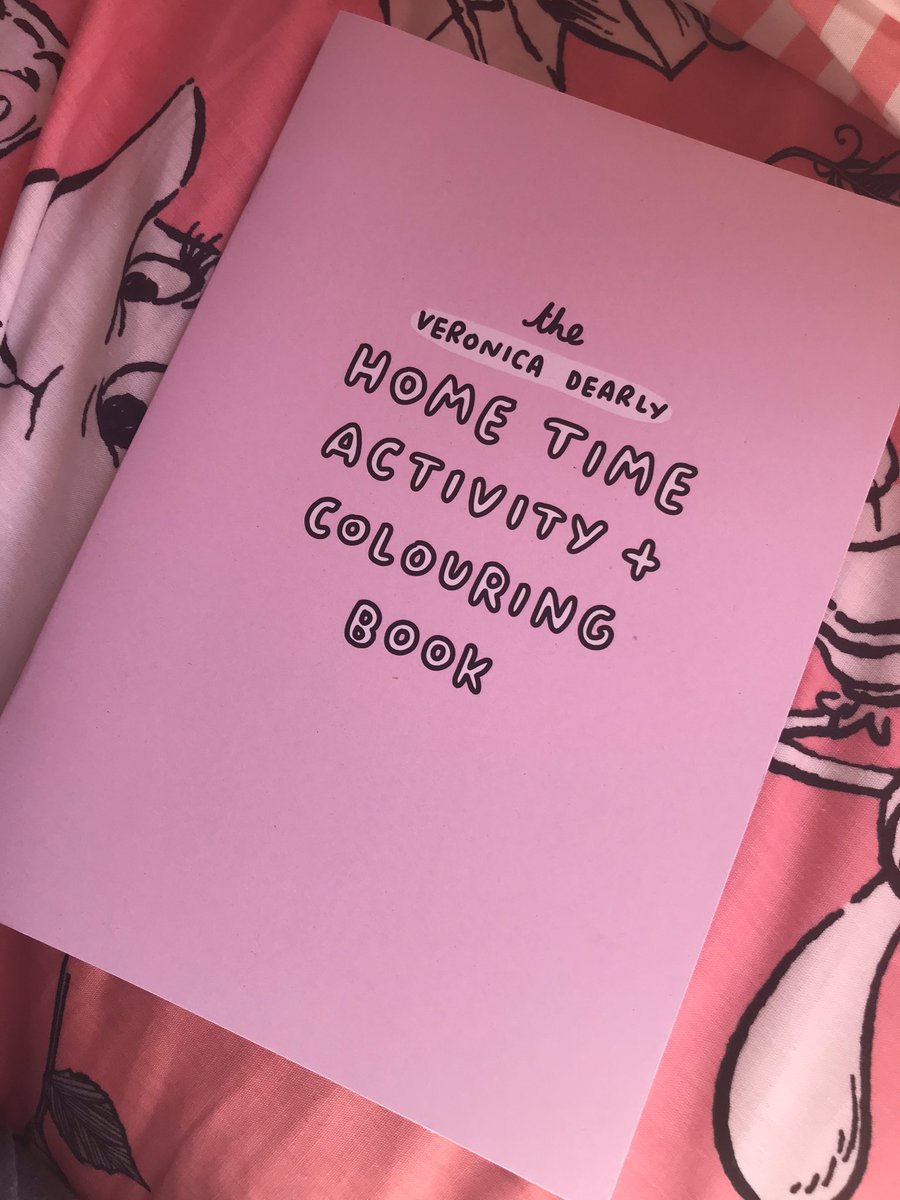 the
VERONICA DEARLY
HOME TIME
ACTIVITY +
COLOURING
BOOK